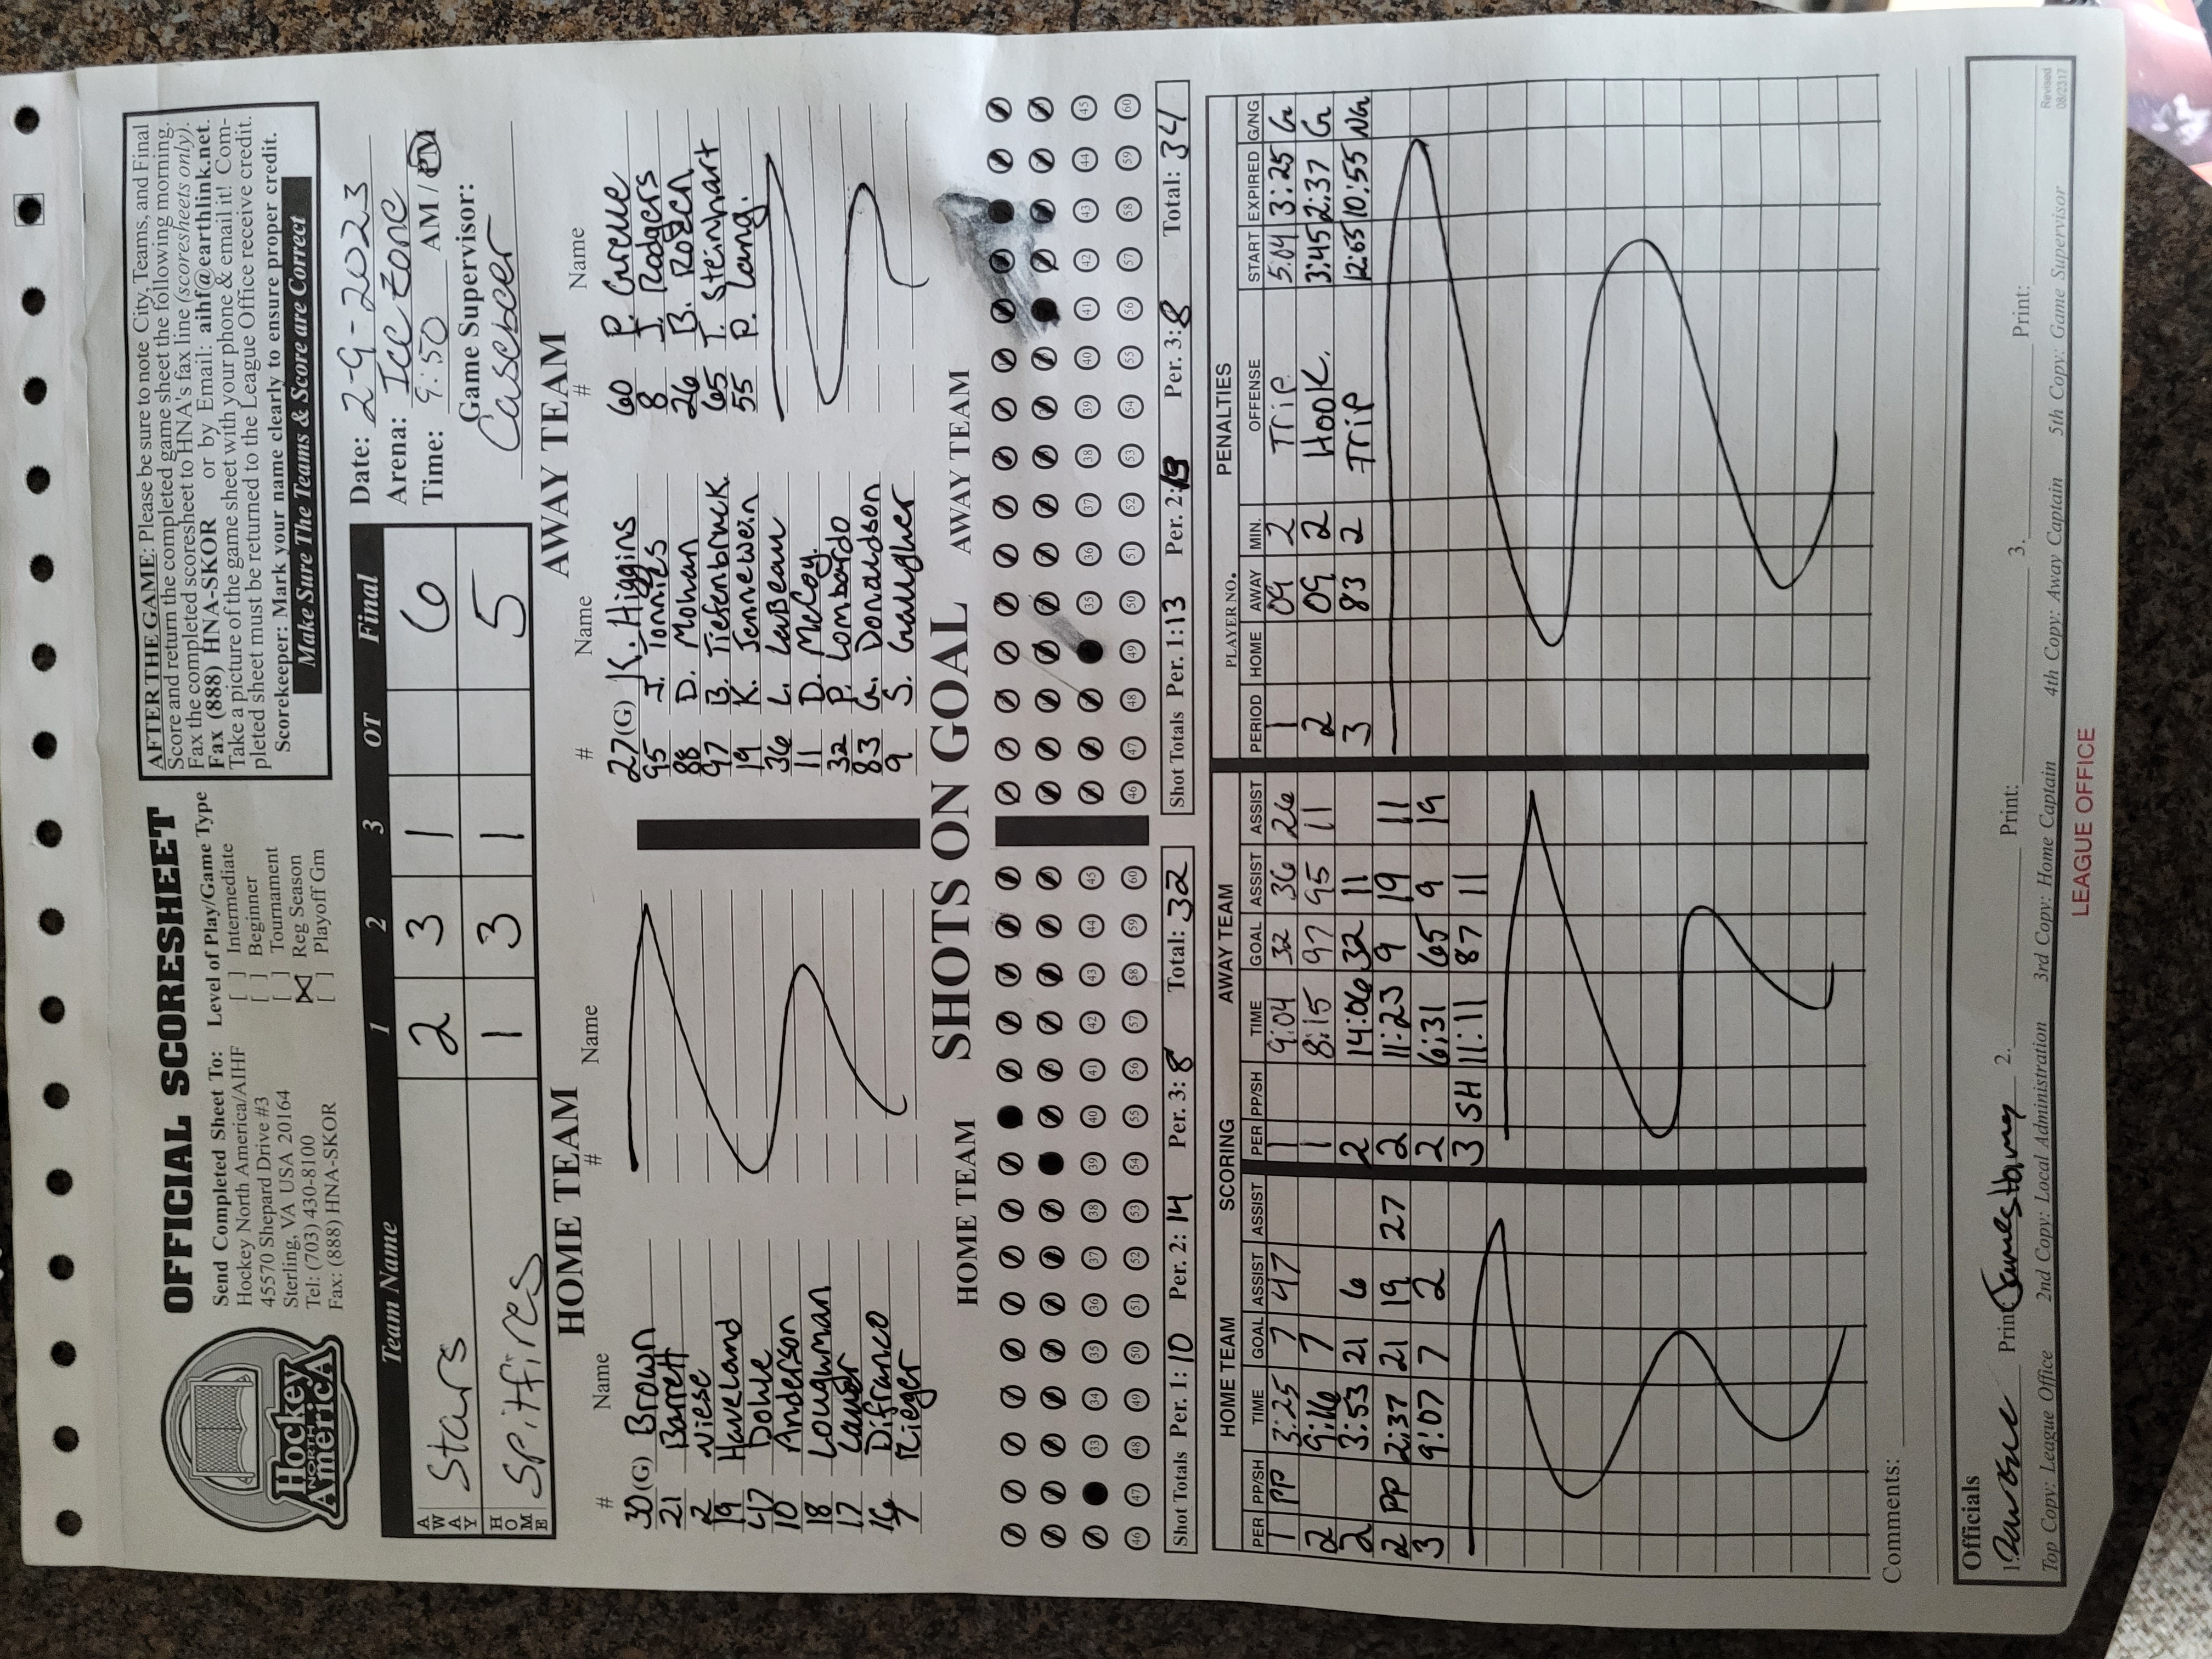 Hockey
NORTH
America
OFFICIAL SCORESHEET
Send Completed Sheet To:
Hockey North America/AIHF
45570 Shepard Drive #3
Sterling, VA USA 20164
Tel: (703) 430-8100
Fax: (888) HNA-SKOR
Level of Play/Game Type
[ ] Intermediate
[ ] Beginner
[ ] Tournament
[X] Reg Season
[ ] Playoff Gm
AFTER THE GAME: Please be sure to note City, Teams, and Final
Score and return the completed game sheet the following morning.
Fax the completed scoresheet to HNA's fax line (scoresheets only).
Fax (888) HNA-SKOR or by Email: aihf@earthlink.net.
Take a picture of the game sheet with your phone & email it! Com-
pleted sheet must be returned to the League Office receive credit.
Scorekeeper: Mark your name clearly to ensure proper credit.
Make Sure The Teams & Score are Correct
Team Name 1 2 3 OT Final
AWAY Stars 2 3 1 6
HOME Spitfires 1 3 1 5
Date: 2-9-2023
Arena: Ice Zone
Time: 9:50 AM / PM
Game Supervisor:
HOME TEAM AWAY TEAM
# Name # Name # Name # Name
30 (G) Brown 27 (G) K. Higgins 60 P. Greve
21 Barrett 95 J. Tonnies 8 J. Rodgers
2 Niese 88 D. Mohan 26 B. Rogen
19 Haveland 97 B. Tiefenbruck 65 T. Steinhart
47 Dohle 19 K. Jennewein 55 P. Lang.
10 Anderson 36 L. LaBeau
18 Loughman 11 D. McCoy
17 Lauer 32 P. Lombardo
16 Difranco 83 G. Donaldson
7 Rieger 9 S. Gallagher
HOME TEAM SHOTS ON GOAL AWAY TEAM
33 34 35 36 37 38 39 40 41 42 43 44 45 35 36 37 38 39 40 41 42 43 44 45
46 47 48 49 50 51 52 53 54 55 56 57 58 59 60 46 47 48 49 50 51 52 53 54 55 56 57 58 59 60
Shot Totals Per. 1: 10 Per. 2: 14 Per. 3: 8 Total: 32 Shot Totals Per. 1: 13 Per. 2: 13 Per. 3: 8 Total: 34
HOME TEAM SCORING AWAY TEAM PENALTIES
PLAYER NO.
PER PP/SH TIME GOAL ASSIST ASSIST PER PP/SH TIME GOAL ASSIST ASSIST PERIOD HOME AWAY MIN. OFFENSE START EXPIRED G/NG
1 PP 3:25 7 47 1 9:04 32 36 26 1 09 2 Trip 5:04 3:25 G
2 9:16 7 1 8:15 97 95 11 2 09 2 Hook. 3:45 2:37 G
2 3:53 21 6 2 14:06 32 11 3 83 2 Trip 12:65 10:55 NG
2 PP 2:37 21 19 27 2 11:23 9 19 11
3 9:07 7 2 2 6:31 65 9 19
3 SH 11:11 87 11
Comments:
Officials
1. Print: 2. Print: 3. Print:
Top Copy: League Office 2nd Copy: Local Administration 3rd Copy: Home Captain 4th Copy: Away Captain 5th Copy: Game Supervisor
Revised
08/2317
LEAGUE OFFICE